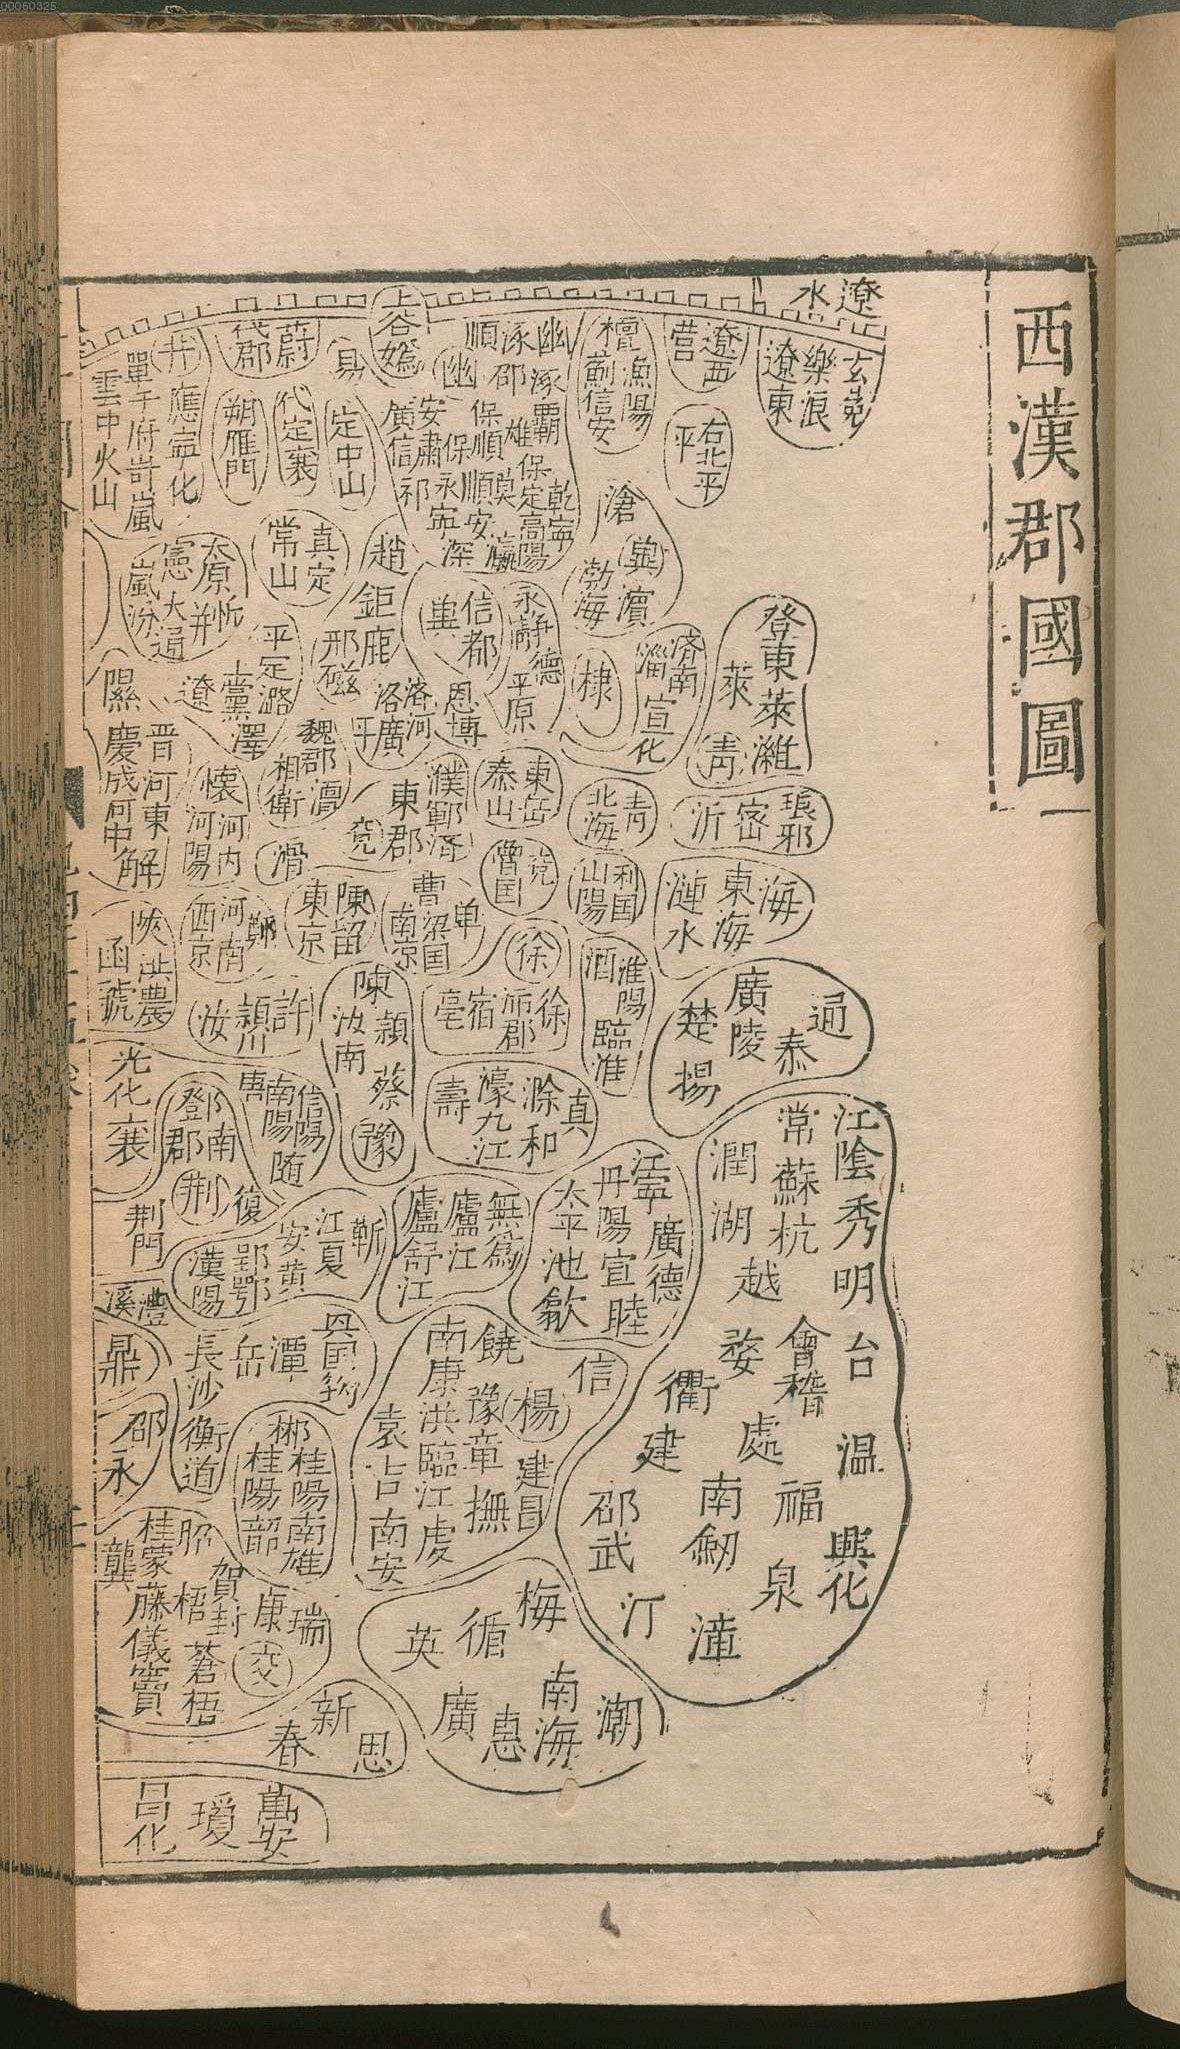 00060325
西漢郡國圖
遼水
玄菟
樂浪
遼東
遼西
營
右北平
平
漁陽
檀薊信安
幽涿
涿郡
順
幽
上谷
媯
易
蔚
代郡
定中山
代定襄
朔雁門
應寧化
單于府岢嵐
雲中火山
霸
雄
保定
乾寧
高陽
保順
順安
永寧
安肅
廣信
祁
深
瀛
滄
濱
勃海
真定
常山
趙
鉅鹿
邢磁
信都
永靜德
平原
恩博
太原
忻
憲
并
大通
嵐汾
平定潞
遼
澤
隰
慶成河中
晋河東解
魏郡
相衛
懷河內
河陽
滑
東郡
濮
東岳
泰山
棣
濟南
淄
宣化
登東萊濰
萊
青
青
北海
琅邪
密
沂
兗
利国
山陽
海
東海
漣水
陳留
東京
鄭
河南
西京
曹
单
梁国
南京
徐
淮陽
臨淮
陝
虢
許
潁川
汝
陳
潁
蔡
汝南
豫
徐
宿
亳
通
泰
廣陵
楚
揚
光化
襄
南
鄧郡
荆
信陽
南陽
唐
随
真
滁和
濠九江
壽
復
荆門
蘄
江夏
安黃
鄂
漢陽
無為
廬江
廬舒江
江寧
廣德
丹陽宣睦
太平池歙
江陰
秀
明
台
温
興化
常
蘇
杭
會稽
福
泉
潤
湖
越
婺
處
南劒
漳
衢
建
邵武
汀
澧
鼎
邵
永
潭
岳
長沙
衡道
郴
桂陽
韶
桂陽
南雄
信
饒
楊
豫章
撫
建昌
南康洪臨江虔
袁吉南安
賀
封
康
瑞
交
梧
蒼梧
桂蒙藤儀竇
龔
梅
循
英
潮
南海
惠
廣
新
思
春
萬安
瓊
昌化